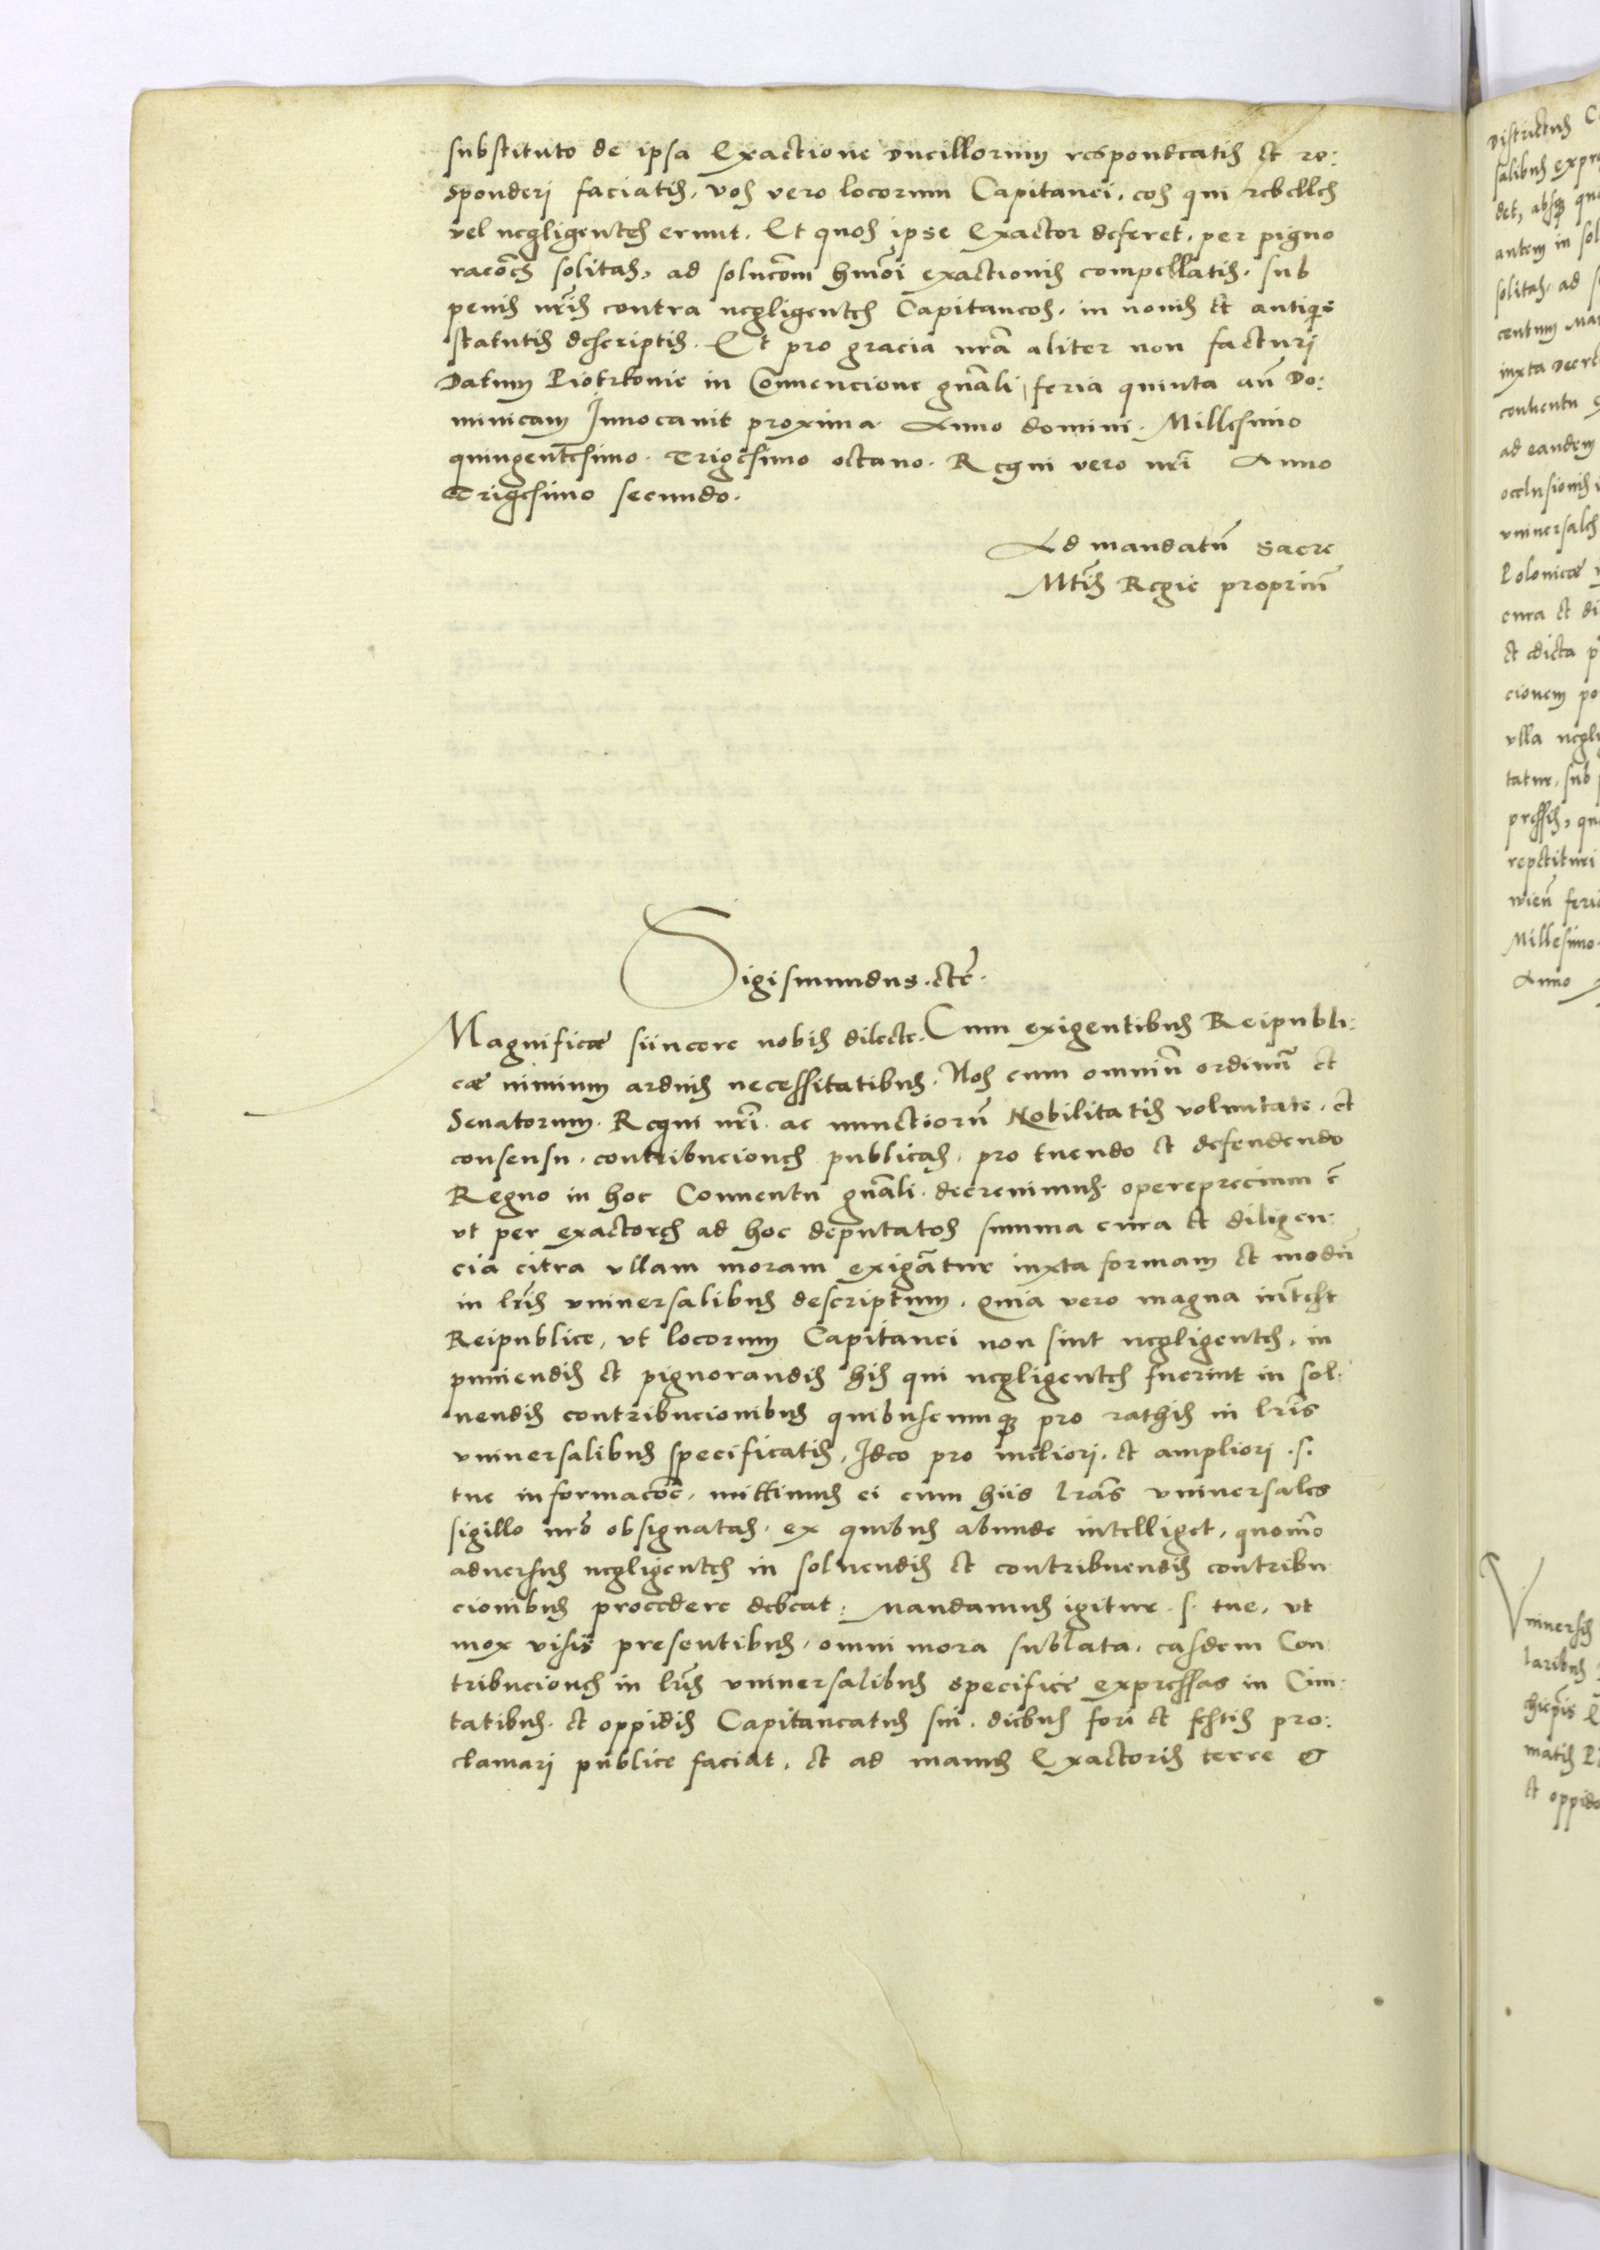 substituto de ipsa Exactione ducillorum respondeatis et re:
sponderi faciatis, vos vero locorum Capitanei, eos qui rebelles
vel negligentes erunt. Et quos ipse Exactor deferet, per pigno
racões solitas, ad solucõm hmõi exactionis compellatis, sub
penis nr̃is contra negligentes Capitaneos, in nouis et antiquis
statutis descriptis. Et pro gracia nrã aliter non facturi
Datum Piotrkouie in Conuencione gnãli, feria quinta añ Do:
minicam Inuocauit proxima Anno domini. Millesimo
quingentesimo. Trigesimo octauo. Regni vero nrĩ Anno
Trigesimo secundo.
Ad mandatũ Sacre
Mtĩs Regie propriũ
Sigismundus. etc̃.
Magnificæ sincere nobis dilecte. Cum exigentibus Reipubli:
cæ nimium arduis necessitatibus. Nos cum omniũ ordinũ et
Senatorum. Regni nrĩ. ac nunctiorũ Nobilitatis voluntate, et
consensu. contribuciones publicas, pro tuendo et defendendo
Regno in hoc Conuentu gnãli. decreuimus. opereprecium ẽ
vt per exactores ad hoc deputatos summa cura et diligen:
cia citra vllam moram exigãtur iuxta formam et modũ
in lrĩs vniuersalibus descriptum. Quia vero magna interest
Reipublice, vt locorum Capitanei non sint negligentes, in
puniendis et pignorandis his qui negligentes fuerint in sol:
uendis contribucionibus quibuscumq3 pro rathis in lrĩs
vniuersalibus specificatis, Ideo pro meliori, et ampliori .s.
tue informacõe, mittimus ei cum hiis lrãs vniuersales
sigillo nrõ obsignatas. ex quibus abunde intelliget, quomõ
aduersus negligentes in soluendis et contribuendis contribu
cionibus procedere debeat: Mandamus igitur .s. tue, vt
mox visis presentibus, omni mora sublata, easdem Con
tribuciones in lrĩs vniuersalibus specifice expressas in Ciui:
tatibus. et oppidis Capitaneatus sui. diebus fori et festis pro:
clamari publice faciat, et ad manus Exactoris terre et